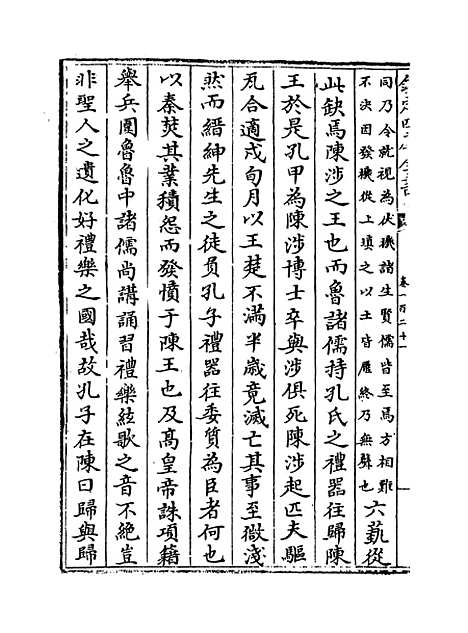 欽定四庫全書
卷一百二十一
同乃令就視為伏機諸生賢儒皆至焉方相難
不決因發機從上填之以土皆壓終乃無聲也
六藝從
此缺焉陳涉之王也而魯諸儒持孔氏之禮器往歸陳
王於是孔甲為陳涉博士卒與涉俱死陳涉起匹夫驅
瓦合適戍旬月以王楚不滿半歲竟滅亡其事至微淺
然而縉紳先生之徒負孔子禮器往委質為臣者何也
以秦焚其業積怨而發憤于陳王也及髙皇帝誅項籍
舉兵圍魯魯中諸儒尚講誦習禮樂絃歌之音不絶豈
非聖人之遺化好禮樂之國哉故孔子在陳曰歸與歸